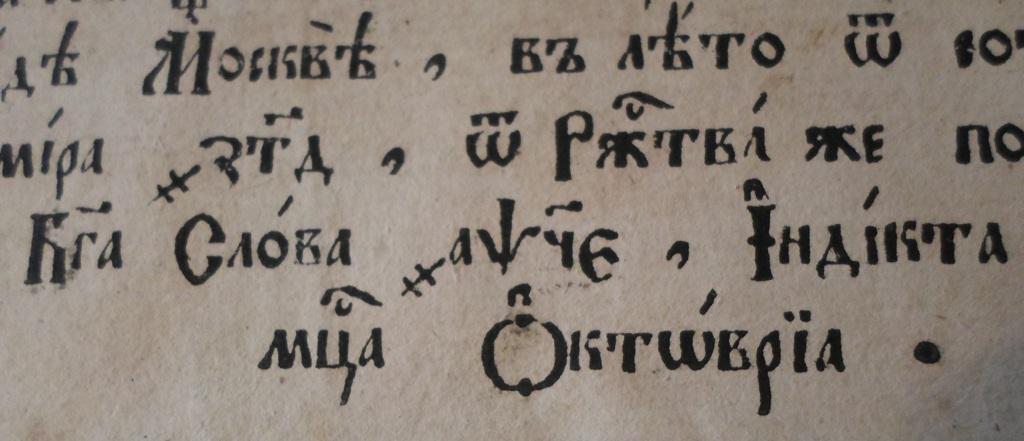 дѣ Москвѣ , въ лѣто ѿ со
мі́ра ҂зт҃д , ѿ Рж҇тва́ же по
Бг҃а Сло́ва ҂аѱч҃є , Їнді́кта
мцⷭ҇а Ѻ҆ктѡ́врїа .